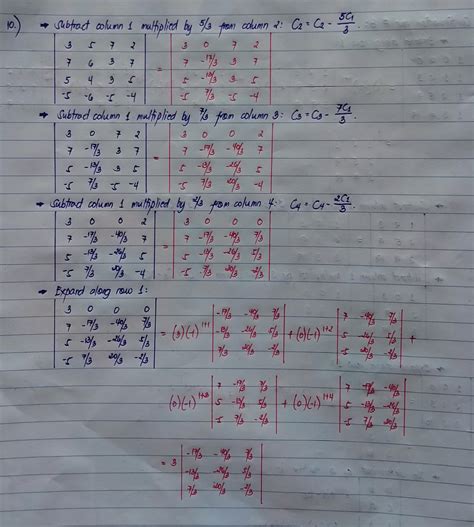 10.) → Subtract column 1 multiplied by 5/3 from column 2: C2 = C2 - 5C1/3.
| 3 5 7 2 | | 3 0 7 2 |
| 7 6 3 7 | | 7 -17/3 3 7 |
| 5 4 3 5 | = | 5 -13/3 3 5 |
| -5 -6 -5 -4 | | -5 7/3 -5 -4 |
→ Subtract column 1 multiplied by 7/3 from column 3: C3 = C3 - 7C1/3.
| 3 0 7 2 | | 3 0 0 2 |
| 7 -17/3 3 7 | = | 7 -17/3 -40/3 7 |
| 5 -13/3 3 5 | | 5 -13/3 -26/3 5 |
| -5 7/3 -5 -4 | | -5 7/3 20/3 -4 |
→ Subtract column 1 multiplied by 2/3 from column 4: C4 = C4 - 2C1/3.
| 3 0 0 2 | | 3 0 0 0 |
| 7 -17/3 -40/3 7 | = | 7 -17/3 -40/3 7/3 |
| 5 -13/3 -26/3 5 | | 5 -13/3 -26/3 5/3 |
| -5 7/3 20/3 -4 | | -5 7/3 20/3 -2/3 |
→ Expand along row 1:
| 3 0 0 0 | | -17/3 -40/3 7/3 | | 7 -40/3 7/3 |
| 7 -17/3 -40/3 7/3 | = (3)(-1)^1+1 | -13/3 -26/3 5/3 | + (0)(-1)^1+2 | 5 -26/3 5/3 | +
| 5 -13/3 -26/3 5/3 | | 7/3 20/3 -2/3 | | -5 20/3 -2/3 |
| -5 7/3 20/3 -2/3 |
| 7 -17/3 7/3 | | 7 -17/3 -40/3 |
(0)(-1)^1+3 | 5 -13/3 5/3 | + (0)(-1)^1+4 | 5 -13/3 -26/3 |
| -5 7/3 -2/3 | | -5 7/3 20/3 |
| -17/3 -40/3 7/3 |
= 3 | -13/3 -26/3 5/3 |
| 7/3 20/3 -2/3 |